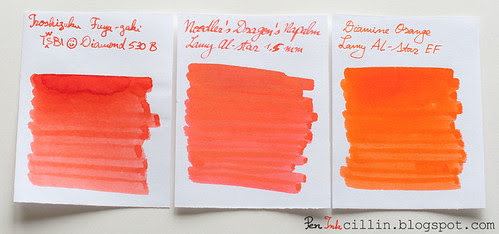 Iroshizuku Fuyu-gaki
TWSBI ☺ Diamond 530 B
Noodler's Dragon's Napalm
Lamy Al-Star 1,5 mm
Diamine Orange
Lamy AL-Star EF
Pen Ink cillin.blogspot.com